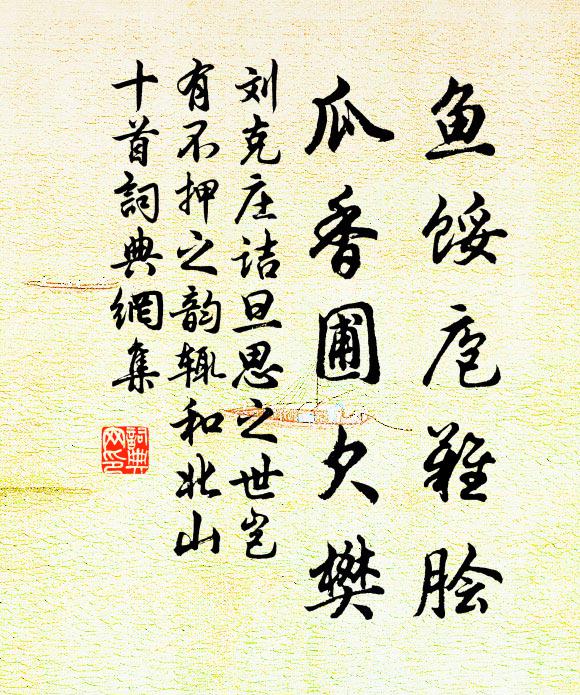 鱼馁庖难脍
瓜香圃欠樊
刘克庄诘旦思之世岂
有不押之韵辄和北山
十首詞典網集
詞典
网印